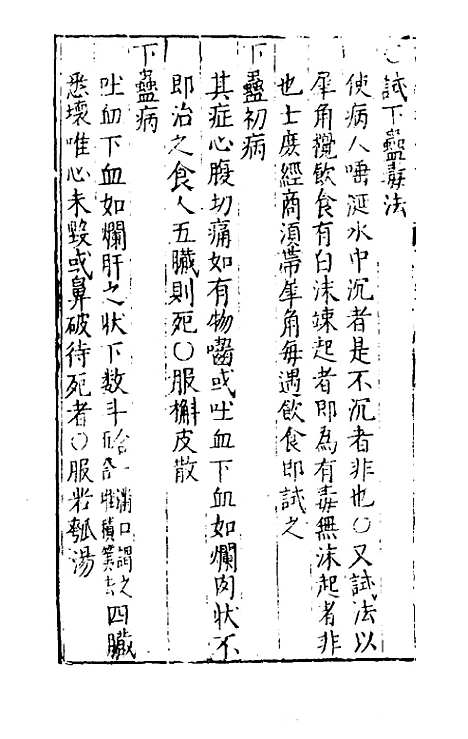 ○試下蠱毒法
使病人唾涎水中沉者是不沉者非也○又試法以
犀角攪飲食有白沫竦起者即為有毒無沫起者非
也士庻經商湏帶犀角每遇飲食即試之
下蠱初病
其症心腹切痛如有物嚙或吐血下血如爛肉状不
即治之食人五臟則死○服槲皮散
下蠱病
吐血下血如爛肝之状下数斗 四臟
悉壞唯心未毀或鼻破待死者○服 瓠湯